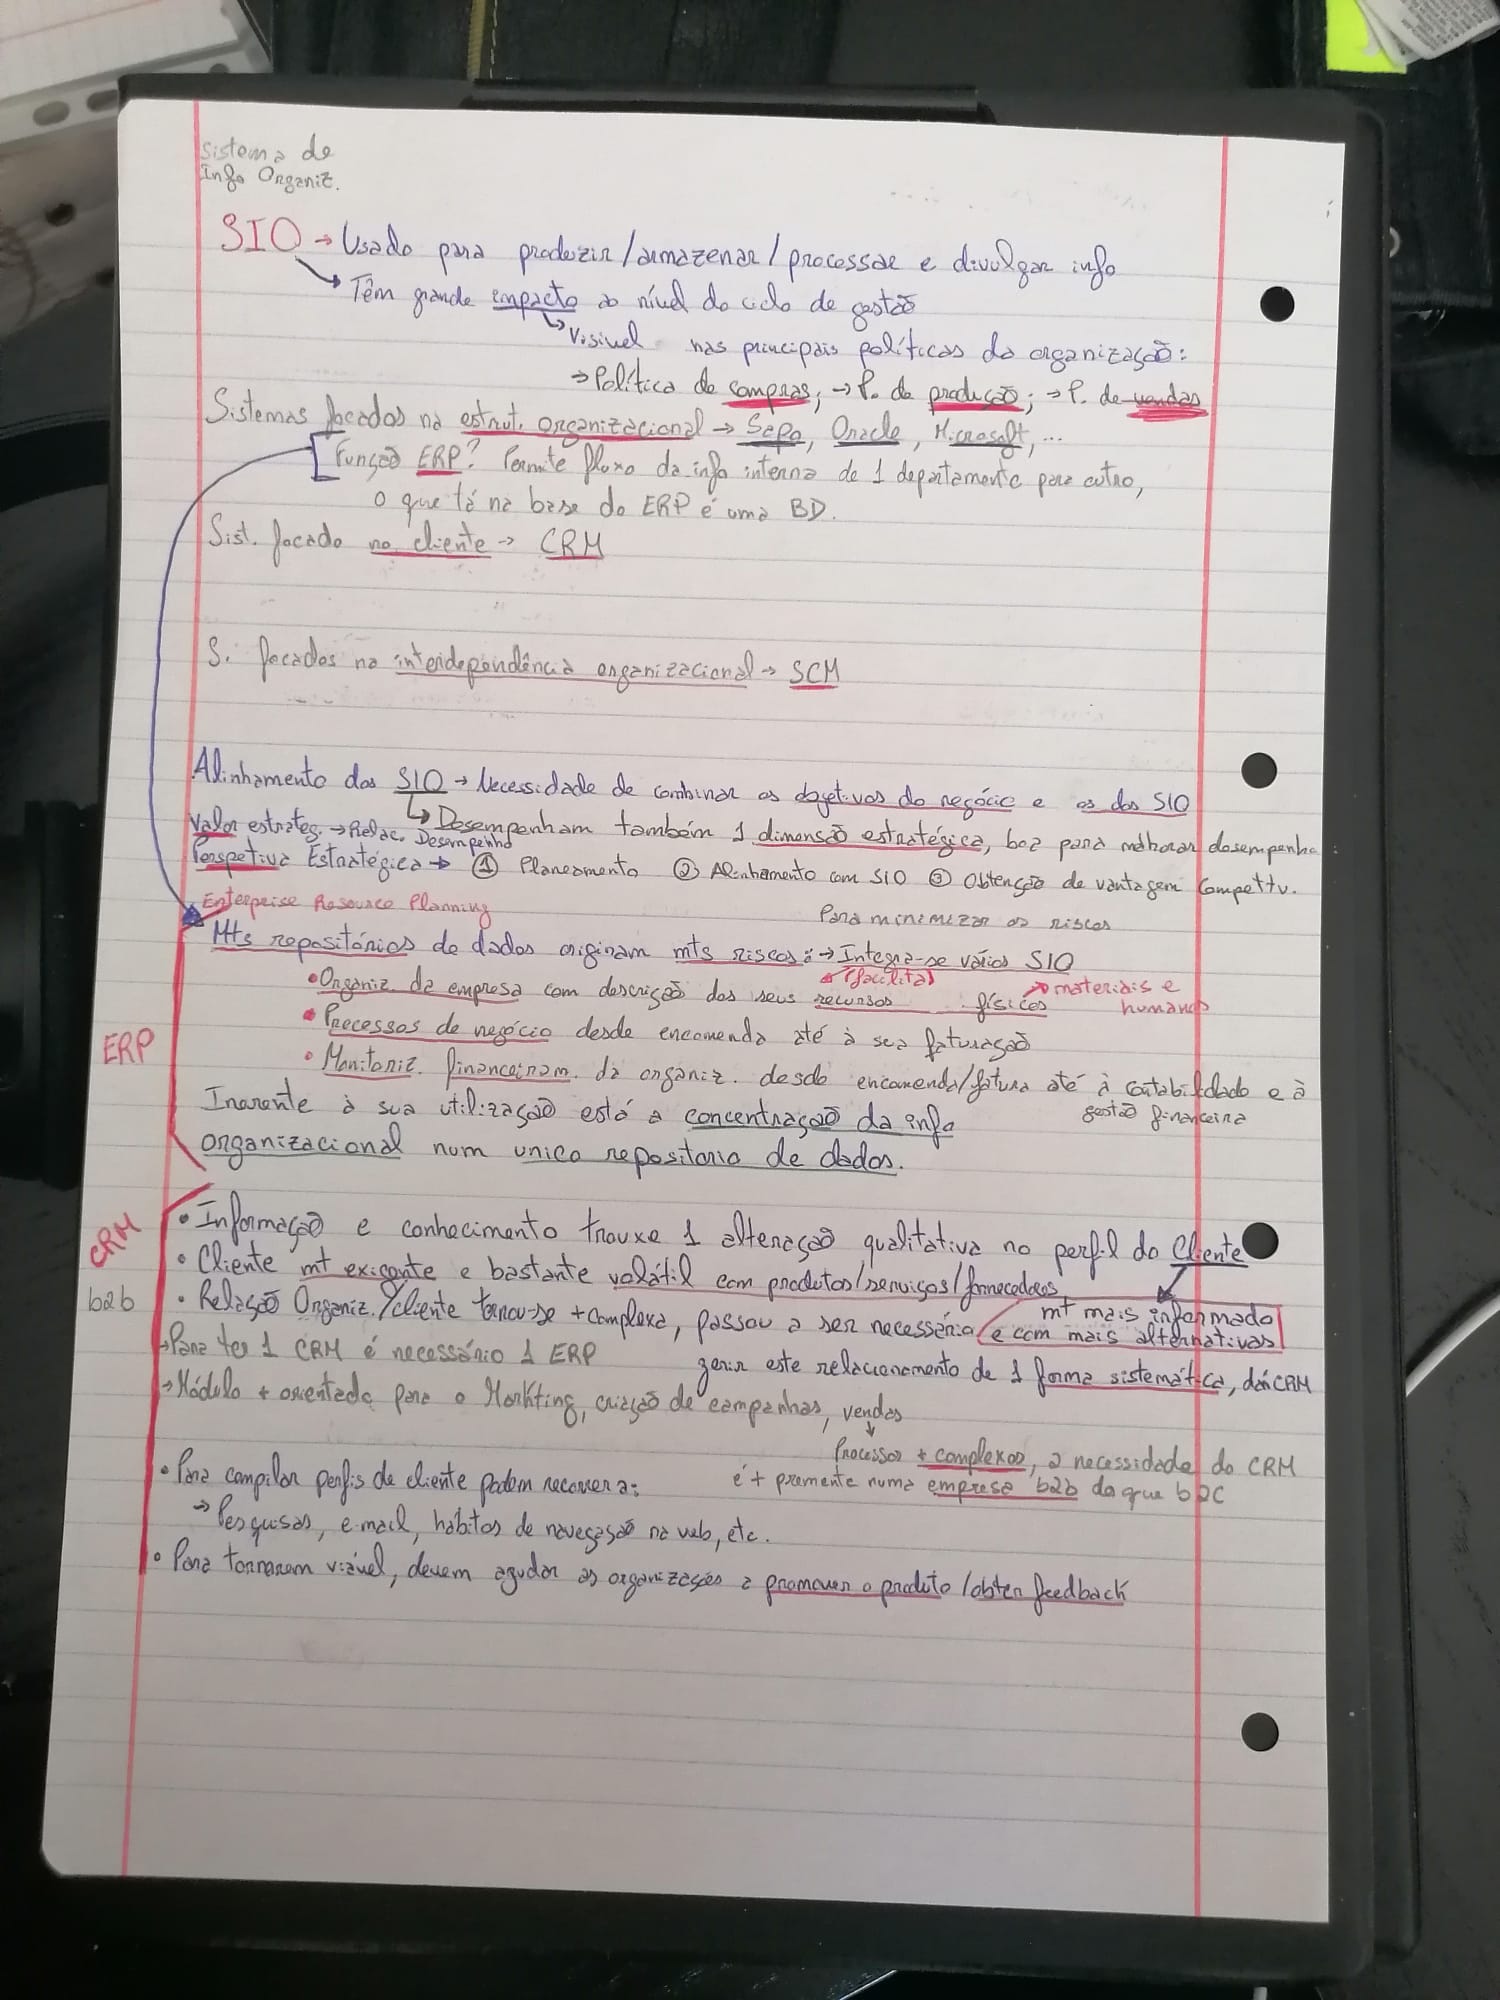 Sistema de
Info Organiz.
SIO → Usado para produzir/armazenar/processar e divulgar info
→ Têm grande impacto ao nível do ciclo de gestão
↳ Visivel nas principais políticas da organização:
→ Política de compras; → P. de produção; → P. de vendas
Sistemas focados na estrut. organizacional → Sapo, Oracle, Microsoft, ...
Função ERP? Permite fluxo da info interna de 1 departamento para outro,
o que tá na base do ERP é uma BD.
Sist. focado no cliente → CRM
S. focados na interdependência organizacional → SCM
Alinhamento dos SIO → Necessidade de combinar os objetivos do negócio e os dos SIO
↳ Desempenham também 1 dimensão estratégica, boa para melhorar desempenho
Valor estrateg. → Relac. Desempenho
Perspetiva Estratégica → ① Planeamento ② Alinhamento com SIO ③ Obtenção de vantagem Compettv.
Enterprise Resource Planning
Para minimizar os riscos
Mts repositórios de dados originam mts riscos: → Integra-se vários SIO
(facilita)
• Organiz. da empresa com descrição dos seus recursos físicos → materiais e humanos
• Processos de negócio desde encomenda até à sua faturação
ERP
• Monitoriz. financeiram. da organiz. desde encomenda/fatura até à contabilidade e à
gestão financeira
Inerente à sua utilização está a concentração da info
organizacional num unico repositorio de dados.
CRM
• Informação e conhecimento trouxe 1 alteração qualitativa no perfil do Cliente
• Cliente mt exigente e bastante volátil com produtos/serviços/fornecedores
mt mais informado
e com mais alternativas
b2b
• Relação Organiz./cliente tornou-se + complexa, passou a ser necessário
gerir este relacionamento de 1 forma sistemática, daí CRM
→ Para ter 1 CRM é necessário 1 ERP
→ Módulo + orientado para o Markting, criação de campanhas, vendas
Processos + complexos, a necessidade do CRM
é + premente numa empresa b2b do que b2C
• Para compilar perfis de cliente podem recorrer a:
→ Pesquisas, e-mail, habitos de navegação na web, etc.
• Para tornarem viável, devem ajudar as organizações a promover o produto/obter feedback